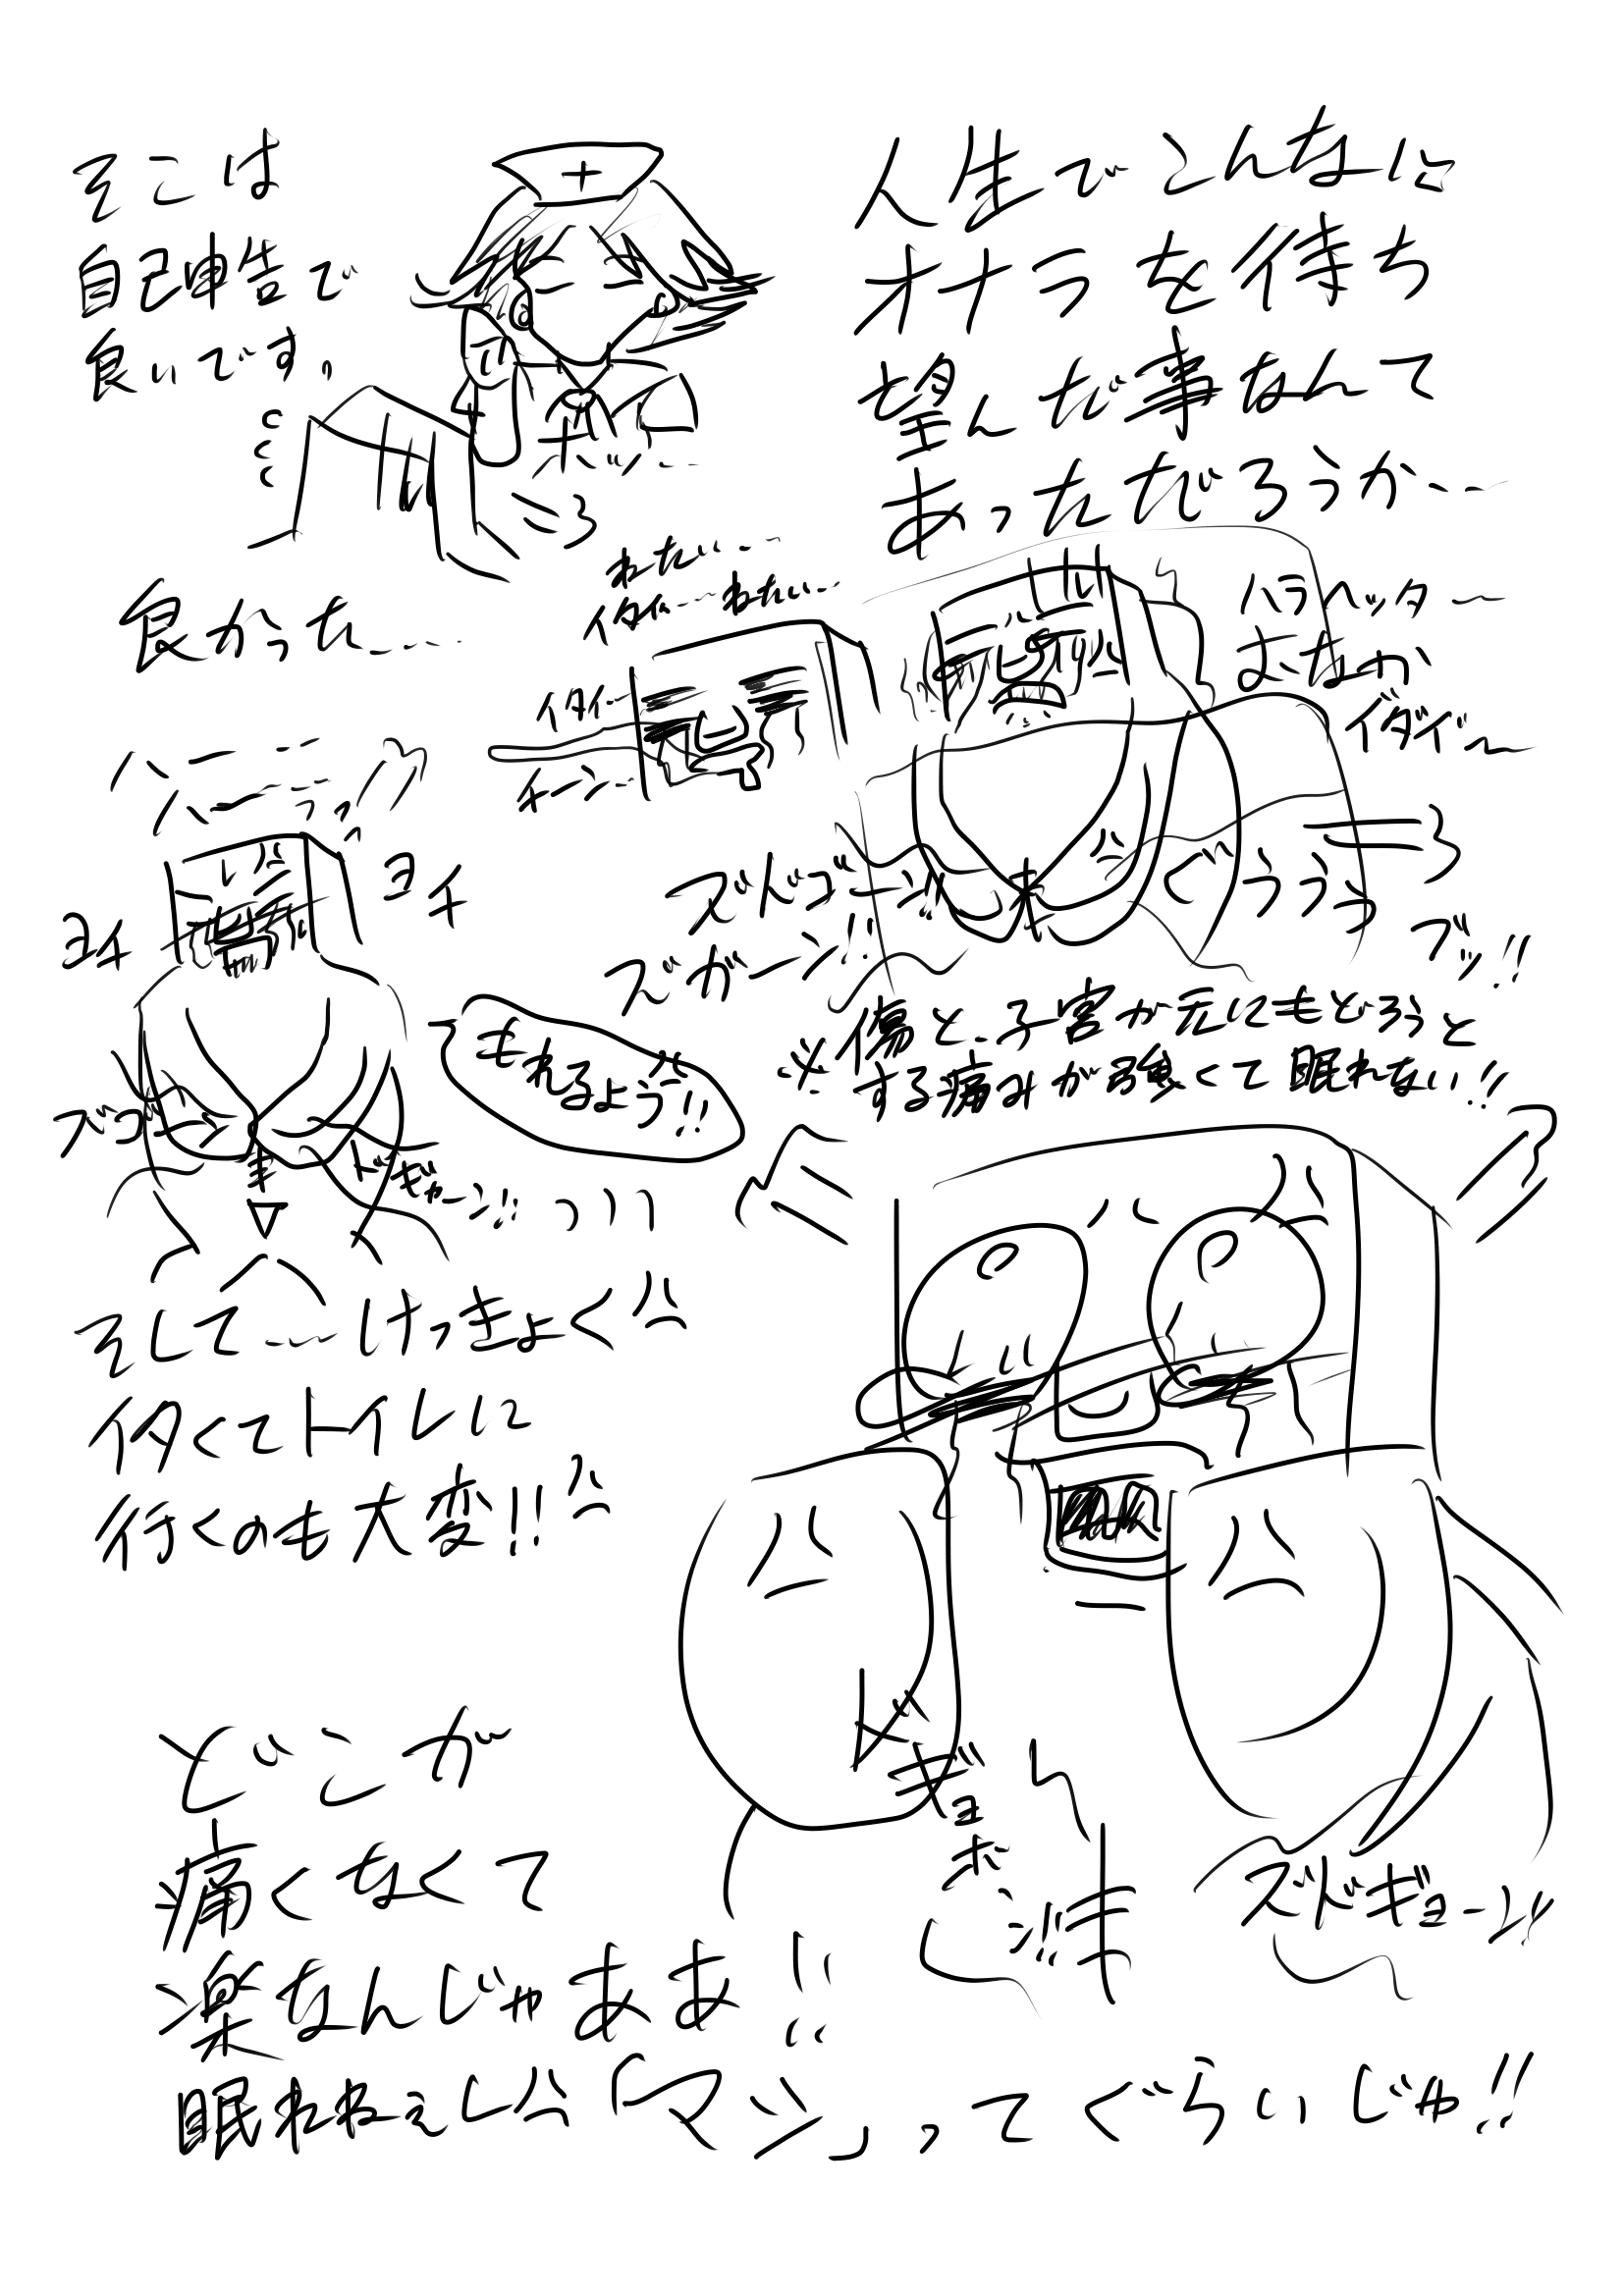 人生でこんなに
オナラを待ち
望んだ事なんて
あっただろうか…
そこは
自己申告で
良いです。
ボソッ…
良かった…
ねたい…
イタイ…ねたい…
イタイ…
チーン…
ハラヘッター
おなか
イダイ゛~
ぐううう
ブッ!!
ズドゴーン!!
ズガーン!!
※傷と、子宮が元にもどろうと
する痛みが強くて眠れない!!
ハニー
ハニー
ヨチ
ヨチ
もれるよう!!
ズゴーン
ドギャーン!!
そして…けっきょく
イタくてトイレに
行くのも大変!!
ギョ
ボーン!!
ズドギョーン!!
どこが
痛くなくて
楽なんじゃああ!!
眠れねぇし「マジ」ってぐらいじゃ!!